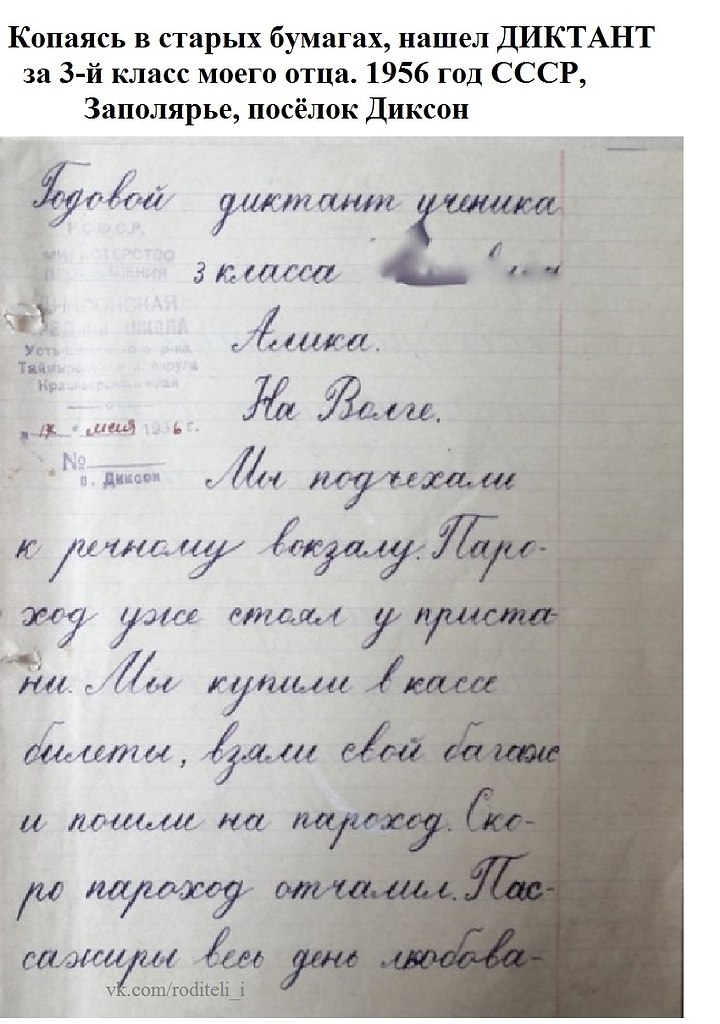 Копаясь в старых бумагах, нашел ДИКТАНТ
за 3-й класс моего отца. 1956 год СССР,
Заполярье, посёлок Диксон
Годовой диктант ученика
Р.С.Ф.С.Р.
3 класса
ПРОСВЕЩЕНИЯ
ШКОЛА
Алика.
Красноярского края
На Волге.
"17" мая 1956 г.
№
п. Диксон
Мы подъехали
к речному вокзалу. Паро-
ход уже стоял у приста-
ни. Мы купили в кассе
билеты, взяли свой багаж
и пошли на пароход. Ско-
ро пароход отчалил. Пас-
сажиры весь день любова-
vk.com/roditeli_i